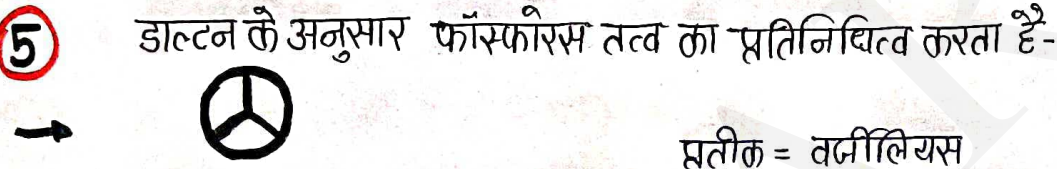 5 डाल्टन के अनुसार फॉस्फोरस तत्व का प्रतिनिधित्व करता है-
→
प्रतीक = वर्जीलियस